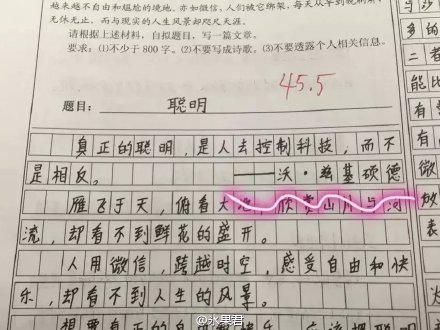 越来越不自由和尴尬的境地。亦如微信，人们被它绑架，每天从早到晚刷屏，
无休无止。而与现实的人生风景却咫尺天涯。
请根据上述材料，自拟题目，写一篇文章。
要求：(1)不少于 800 字。(2)不要写成诗歌。(3)不要透露个人相关信息。
45.5
题目：聪明
真正的聪明，是人去控制科技，而不
是相反。——沃·兹基硕德
雁飞于天，俯看大地，欣赏山川与河
流，却看不到鲜花的盛开。
人用微信，跨越时空，感受自由和快
乐，却看不到人生的风景。
想要真正的
与沙
多的
二者
能比
有
有
微
够
@水果君